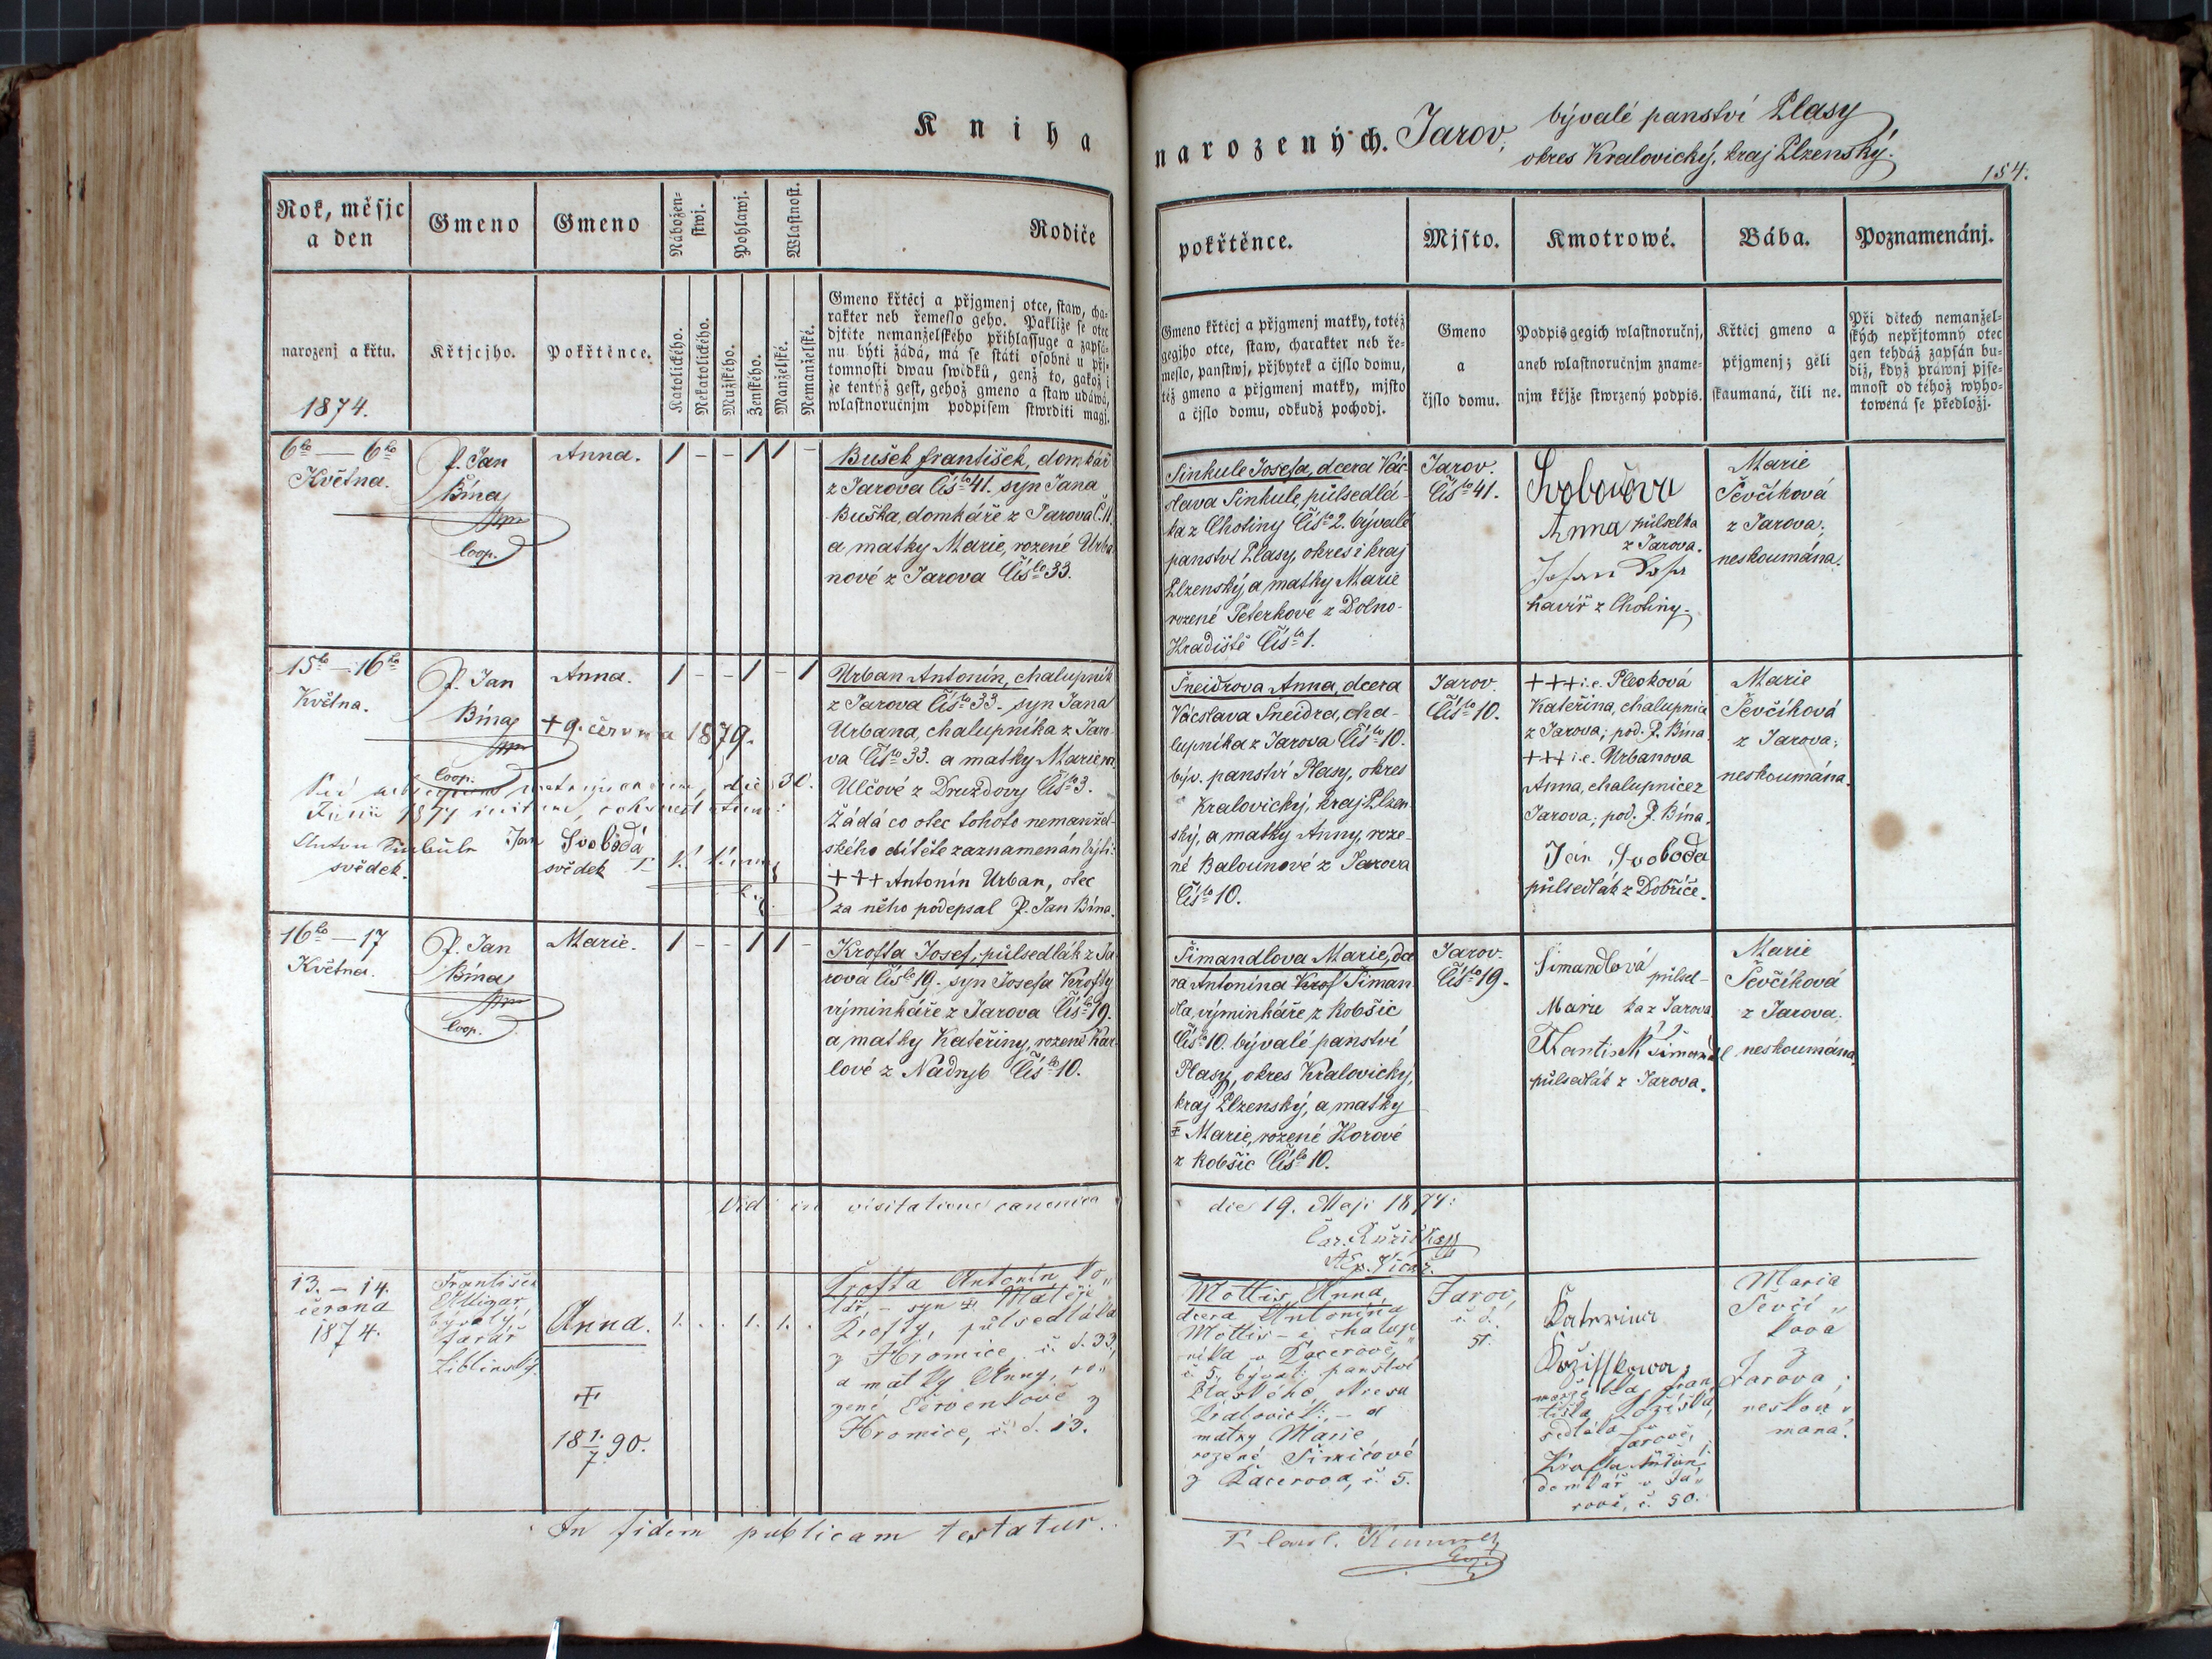 Kniha
narozených. Jarov,
bývalé panství Plasy
okres Kralovický, kraj Plzenský.
154.
Rok, měsjc
a den
Gmeno
Gmeno
Nábožen-
stwj.
Pohlawj.
Wlastnost.
Rodiče
narozenj a křtu.
1874.
Křtjcjho.
Pokřtěnce.
Katolického.
Nekatolického.
Mužského.
Ženského.
Manželské.
Nemanželské.
Gmeno křtěcj a přjgmenj otce, staw, cha-
rakter neb řemeslo geho. Pakliže se otec
djtěte nemanželského přihlassuge a zapsá-
nu býti žádá, má se státi osobně u přj-
tomnosti dwau swědků, genž to, gakož i
že tentýž gest, gehož gmeno a staw udáwá,
wlastnoručnjm podpisem stwrditi magj.
pokřtěnce.
Mjsto.
Kmotrowé.
Bába.
Poznamenánj.
Gmeno křticj a přjgmenj matky, totéž
gegjho otce, staw, charakter neb ře-
meslo, panstwj, přjbytek a čjslo domu,
též gmeno a přjgmenj matky, mjsto
a čjslo domu, odkudž pochodj.
Gmeno
a
čjslo domu.
Podpis gegich wlastnoručnj,
aneb wlastnoručnjm zname-
njm křjže stwrzený podpis.
Křticj gmeno a
přjgmenj; géli
skaumaná, čili ne.
Při dětech nemanžel-
ských nepřjtomný otec
gen tehdáž zapsán bu-
diž, když práwnj pjse-
mnost od téhož wyho-
towená se předložj.
6ho — 6ho
Května.
P. Jan
Bína
Coop.
Anna.
1 - - 1 1 -
Bušek František, domkář
z Jarova Čislo 41. syn Jana
Buška, domkáře z Jarova Č. 11.
a matky Marie, rozené Urba-
nové z Jarova Číslo 33.
Sinkule Josefa, dcera Vác-
slava Sinkule, půlsedlá-
ka z Chotiny Číslo 2. bývalé
panství Plasy, okres i kraj
Plzenský, a matky Marie
rozené Peterkové z Dolno-
Hradiště Číslo 1.
Jarov.
Číslo 41.
Anna půlselka
z Jarova.
havíř z Chotiny.
Marie
Ševčíková
z Jarova;
neskoumána.
15ho — 16ho
Května.
P. Jan
Bína
Coop.
Anna.
+ 9. června 1879.
1 - - 1 - 1
Urban Antonín, chalupník
z Jarova Číslo 33. syn Jana
Urbana, chalupníka z Jaro-
va Číslo 33. a matky Marie n.
Ulčové z Druzdovy Číslo 3.
Žádá co otec tohoto nemanžel-
ského dítěte zaznamenán býti:
+++ Antonín Urban, otec
za něho podepsal P. Jan Bína.
svědek.
Jan Svoboda
svědek
Šneidrova Anna, dcera
Vácslava Šneidra, cha-
lupníka z Jarova Číslo 10.
býv. panství Plasy, okres
Kralovický, kraj Plzen-
ský, a matky Anny, roze-
né Balounové z Jarova
Číslo 10.
Jarov.
Číslo 10.
+++ i.e. Pleská
Kateřina, chalupnice
z Jarova; pod. P. Bína.
+++ i.e. Urbanova
Anna, chalupnice z
Jarova; pod. P. Bína.
Jan Svoboda
půlsedlák z Dobříče.
Marie
Ševčíková
z Jarova;
neskoumána.
16ho — 17
Května.
P. Jan
Bína
Coop.
Marie.
1 - - 1 1 -
Krofta Josef, půlsedlák z Ja-
rova Číslo 19. syn Josefa Krofty
výminkáře z Jarova Číslo 19.
a matky Kateřiny, rozené Kar-
lové z Nadryb Číslo 10.
Šimandlova Marie, dce
ra Antonína Krof Šiman-
dla, výminkáře z Kobšic
Číslo 10. bývalé panství
Plasy, okres Kralovický,
kraj Plzenský, a matky
Marie, rozené Horové
z Kobšic Číslo 10.
Jarov.
Číslo 19.
Simandlová půlsel-
Marie ka z Jarova
Frantisek Šimandl
půlsedlák z Jarova.
Marie
Ševčíková
z Jarova.
neskoumána.
Vid in visitatione canonica
die 19. Maji 1874:
13. - 14.
června
1874.
František
bývalý
farář
Liblinský.
Anna.
+
18 1./7. 90.
1. . . 1. 1. .
Krofta Antonín, ko-
lář, - syn Matěje
Krofty, půlsedláka
z Hromice, č. d. 33,
a matky Anny, ro-
zené Červenkové z
Hromice, č. d. 13.
Mottis Anna,
dcera Antonína
Mottis - e, chalup-
níka v Kacerově,
č. 5, býval. panství
Plaského, okresu
Kralovick., - a
matky Marie,
rozené Šimicové
z Kacerova, č. 5.
Jarov,
č. d.
51.
manželka Fran-
tiška
sedláka v
Jarově,
Krofta Anton
domkář v Ja-
rově, č. 50.
Maria
Ševčí-
kova
z
Jarova;
neskou-
maná.
In fidem publicam testatur.